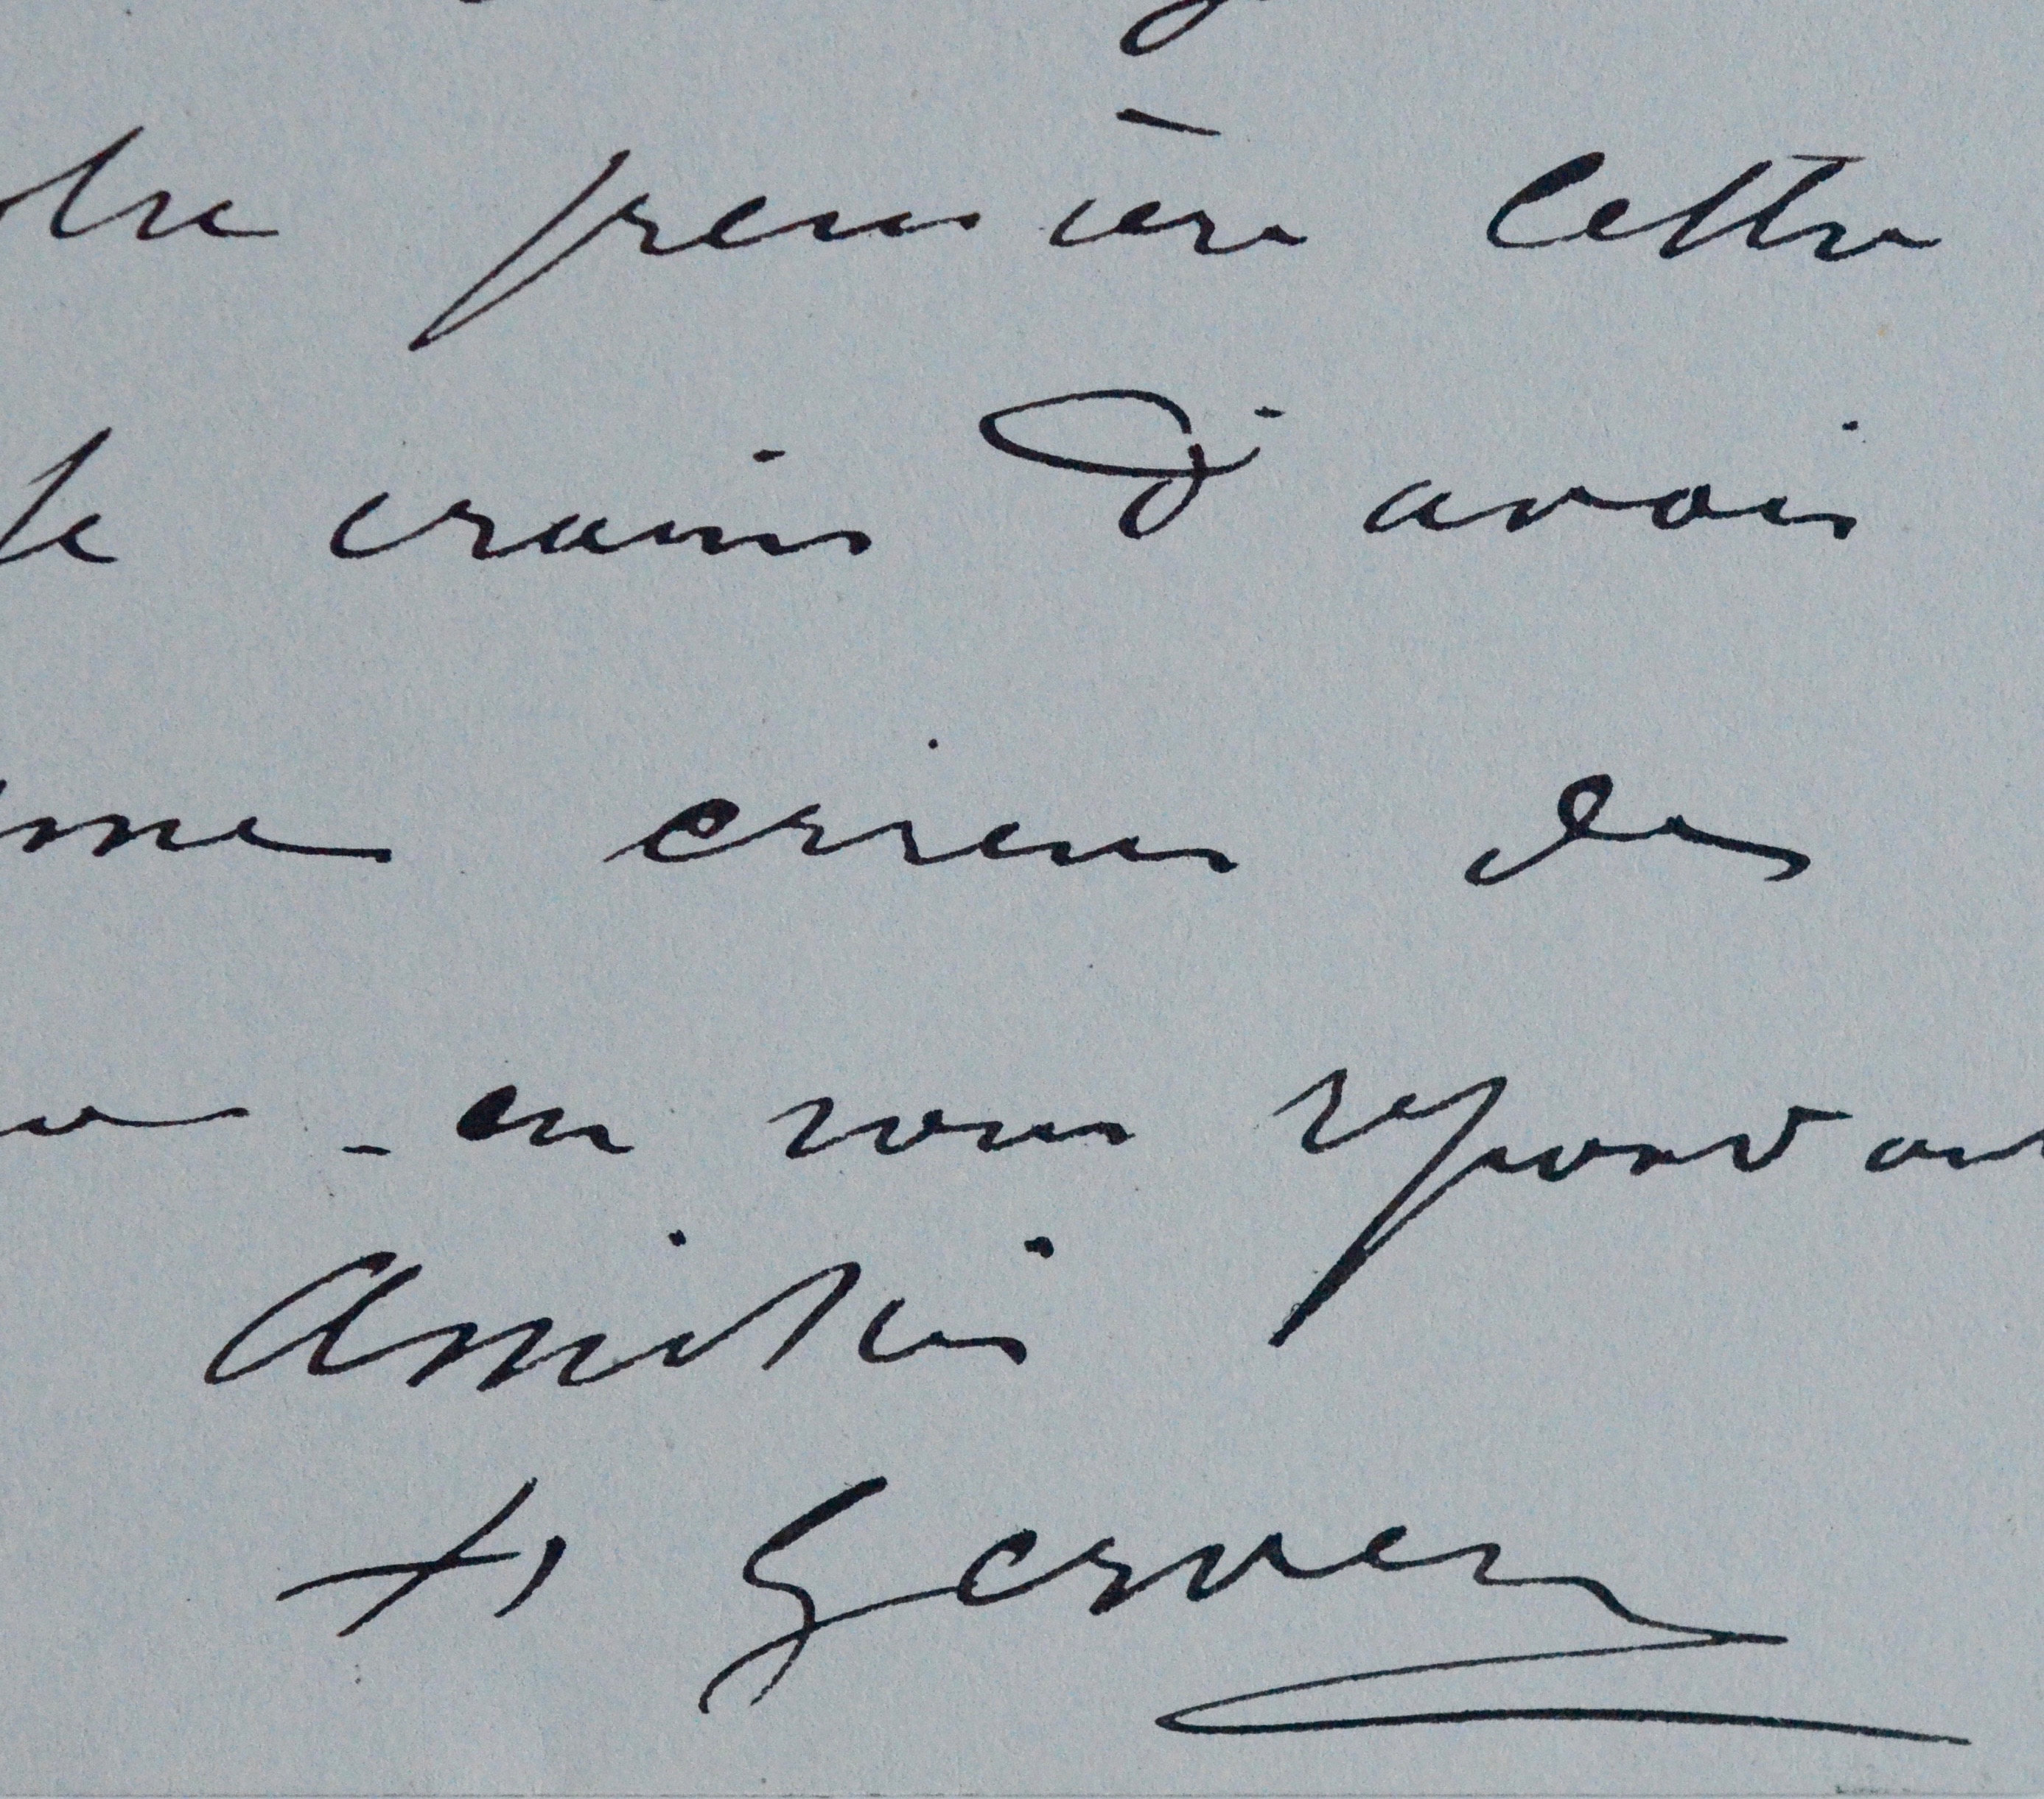 tre première lettre
Je crains d'avoir
me erreur de
en vous répondant
Amitiés
H Gervex